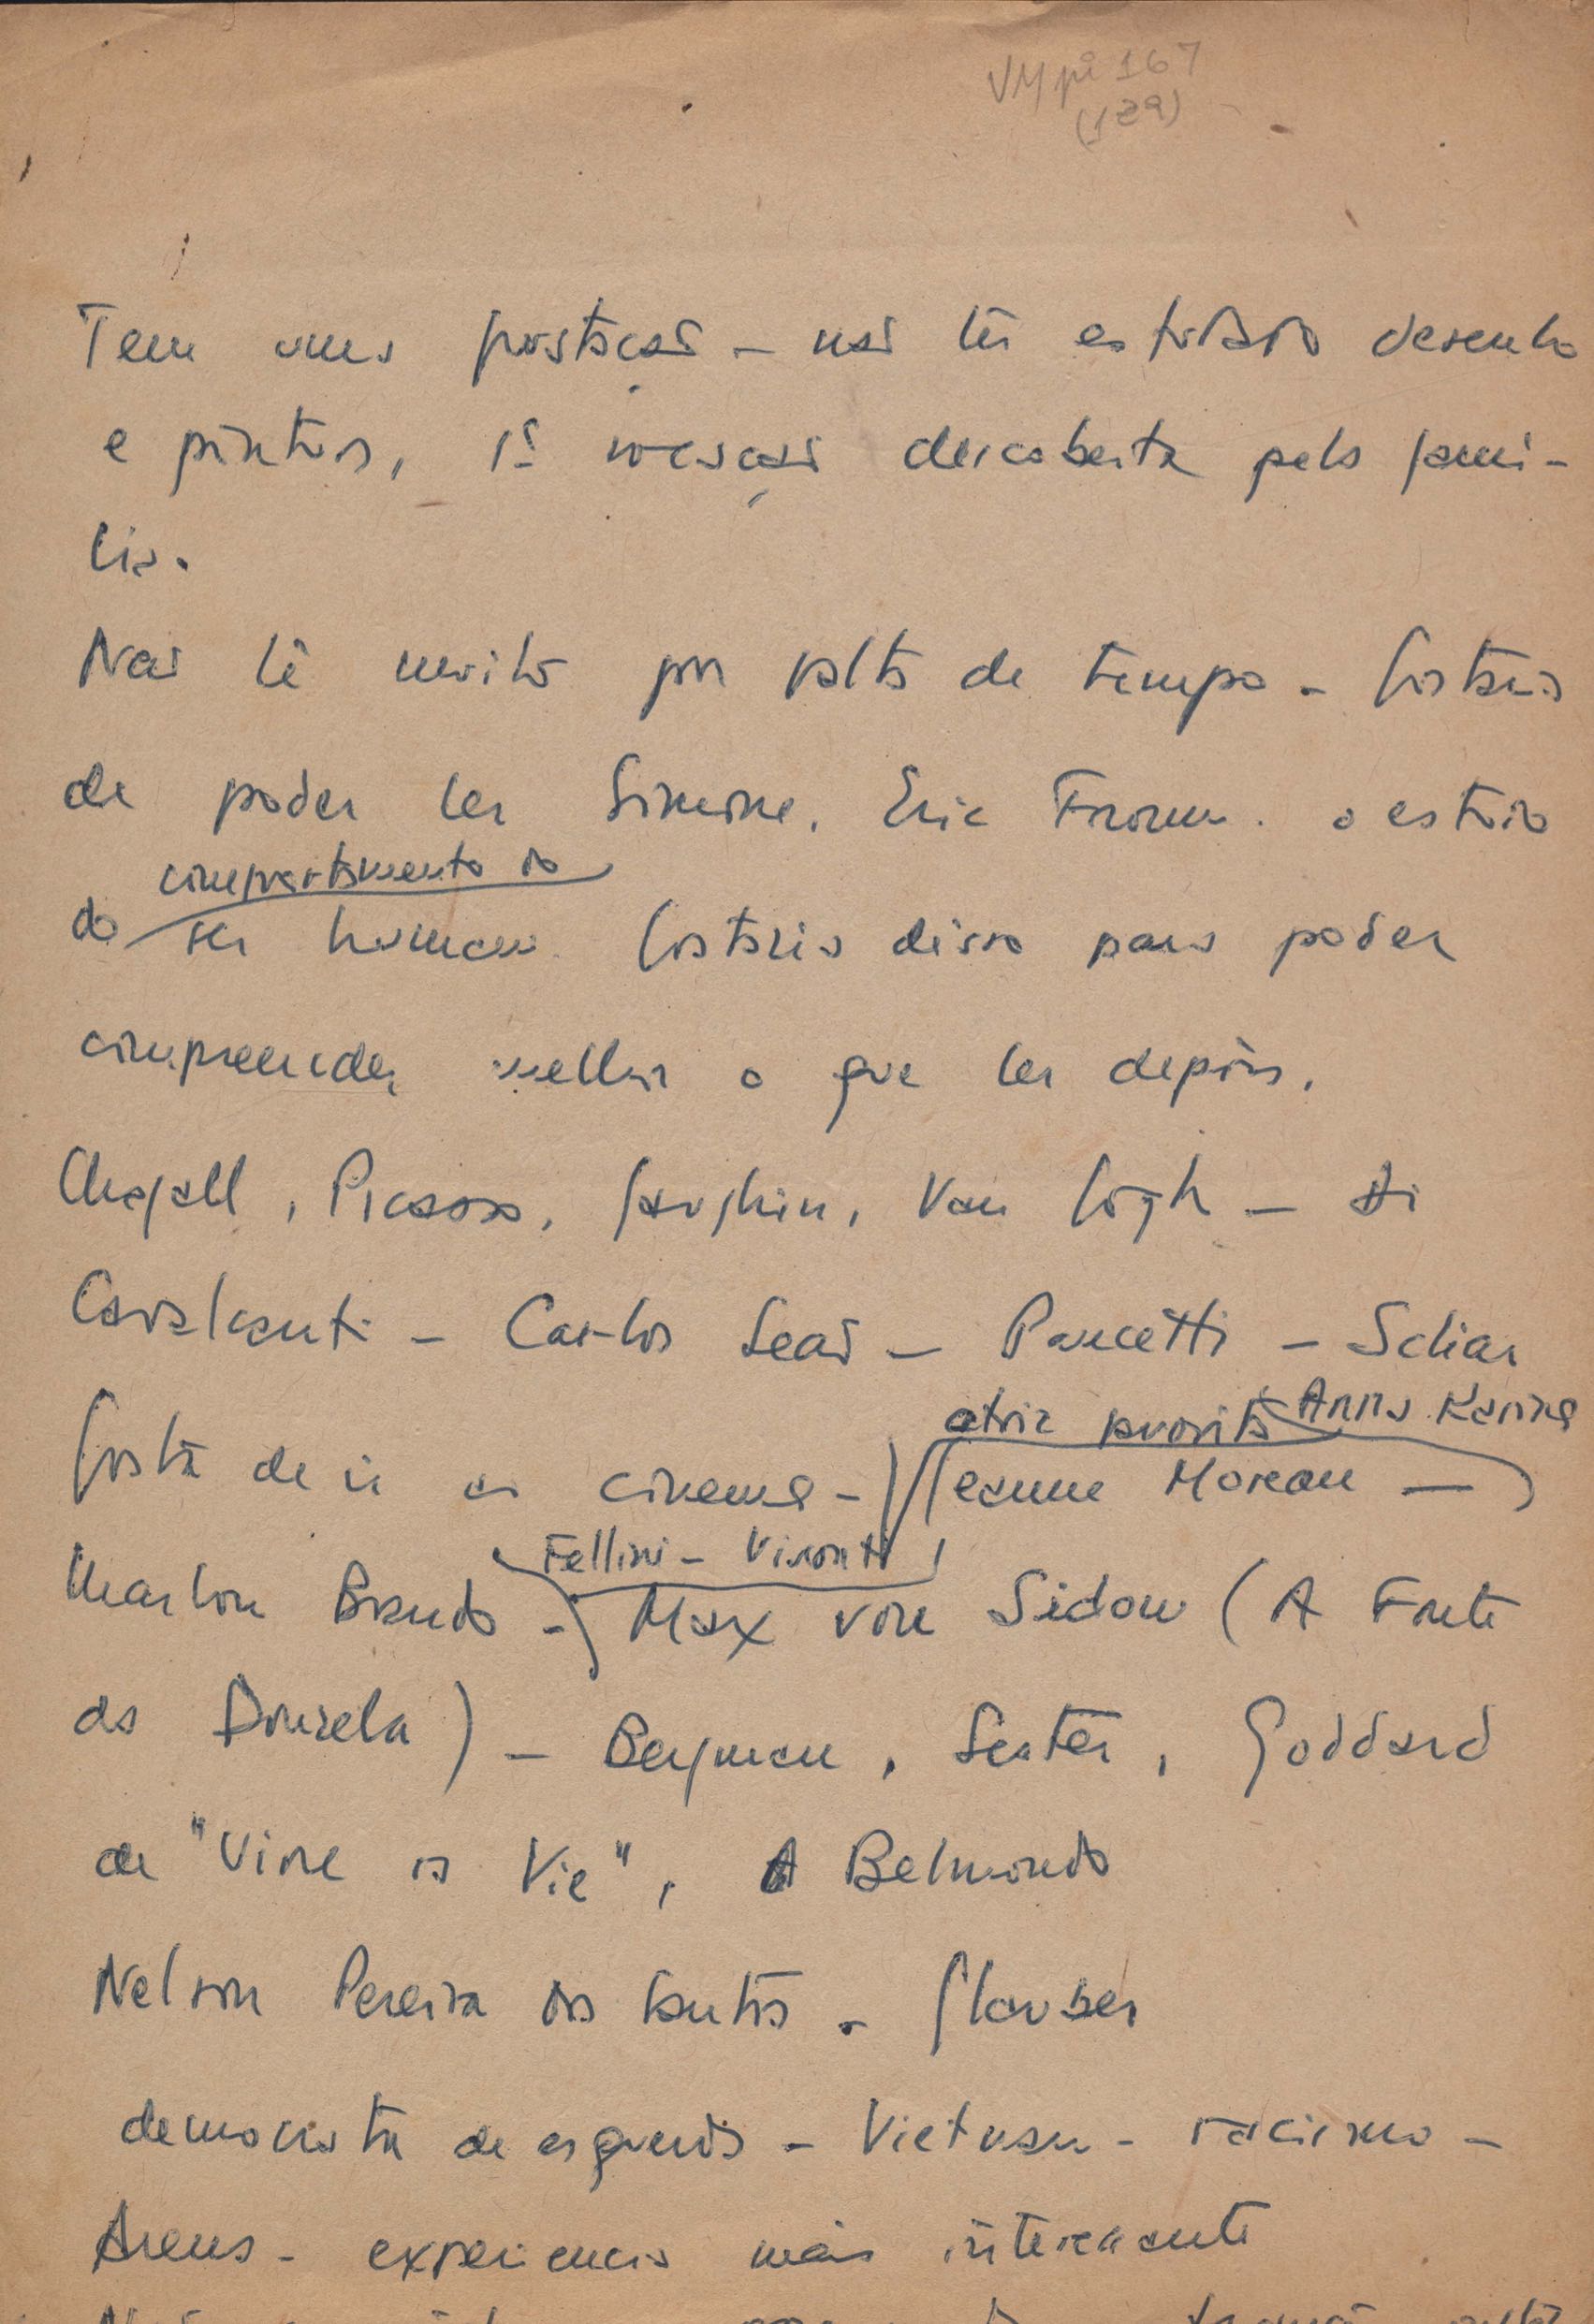 VMpi 167
(1ea)
Tem uma frustação - não ter estudado desenho
e pintura, 1ª vocação descoberta pela famí-
lia.
Não lê muito por falta de tempo - Gostaria
de poder ler Simone, Eric Fromm. o estudo
do comportamento do ser humano. Gostaria disso para poder
compreender melhor o que ler depois.
Chagall, Picasso, Gaughin, Van Gogh - Di
Cavalcanti - Carlos Leão - Pancetti - Scliar
Gosta de ir ao cinema - atriz favorita Anna Karina Jeanne Moreau -
Marlon Brando - Fellini - Visconti Max von Sidow (A Fonte
da Donzela) - Bergman, Lester, Goddard
de "Vivre sa Vie", Belmondo
Nelson Pereira dos Santos - Glauber
democrata de esquerda - Vietnam - racismo -
Arena - experiencia mais interessante